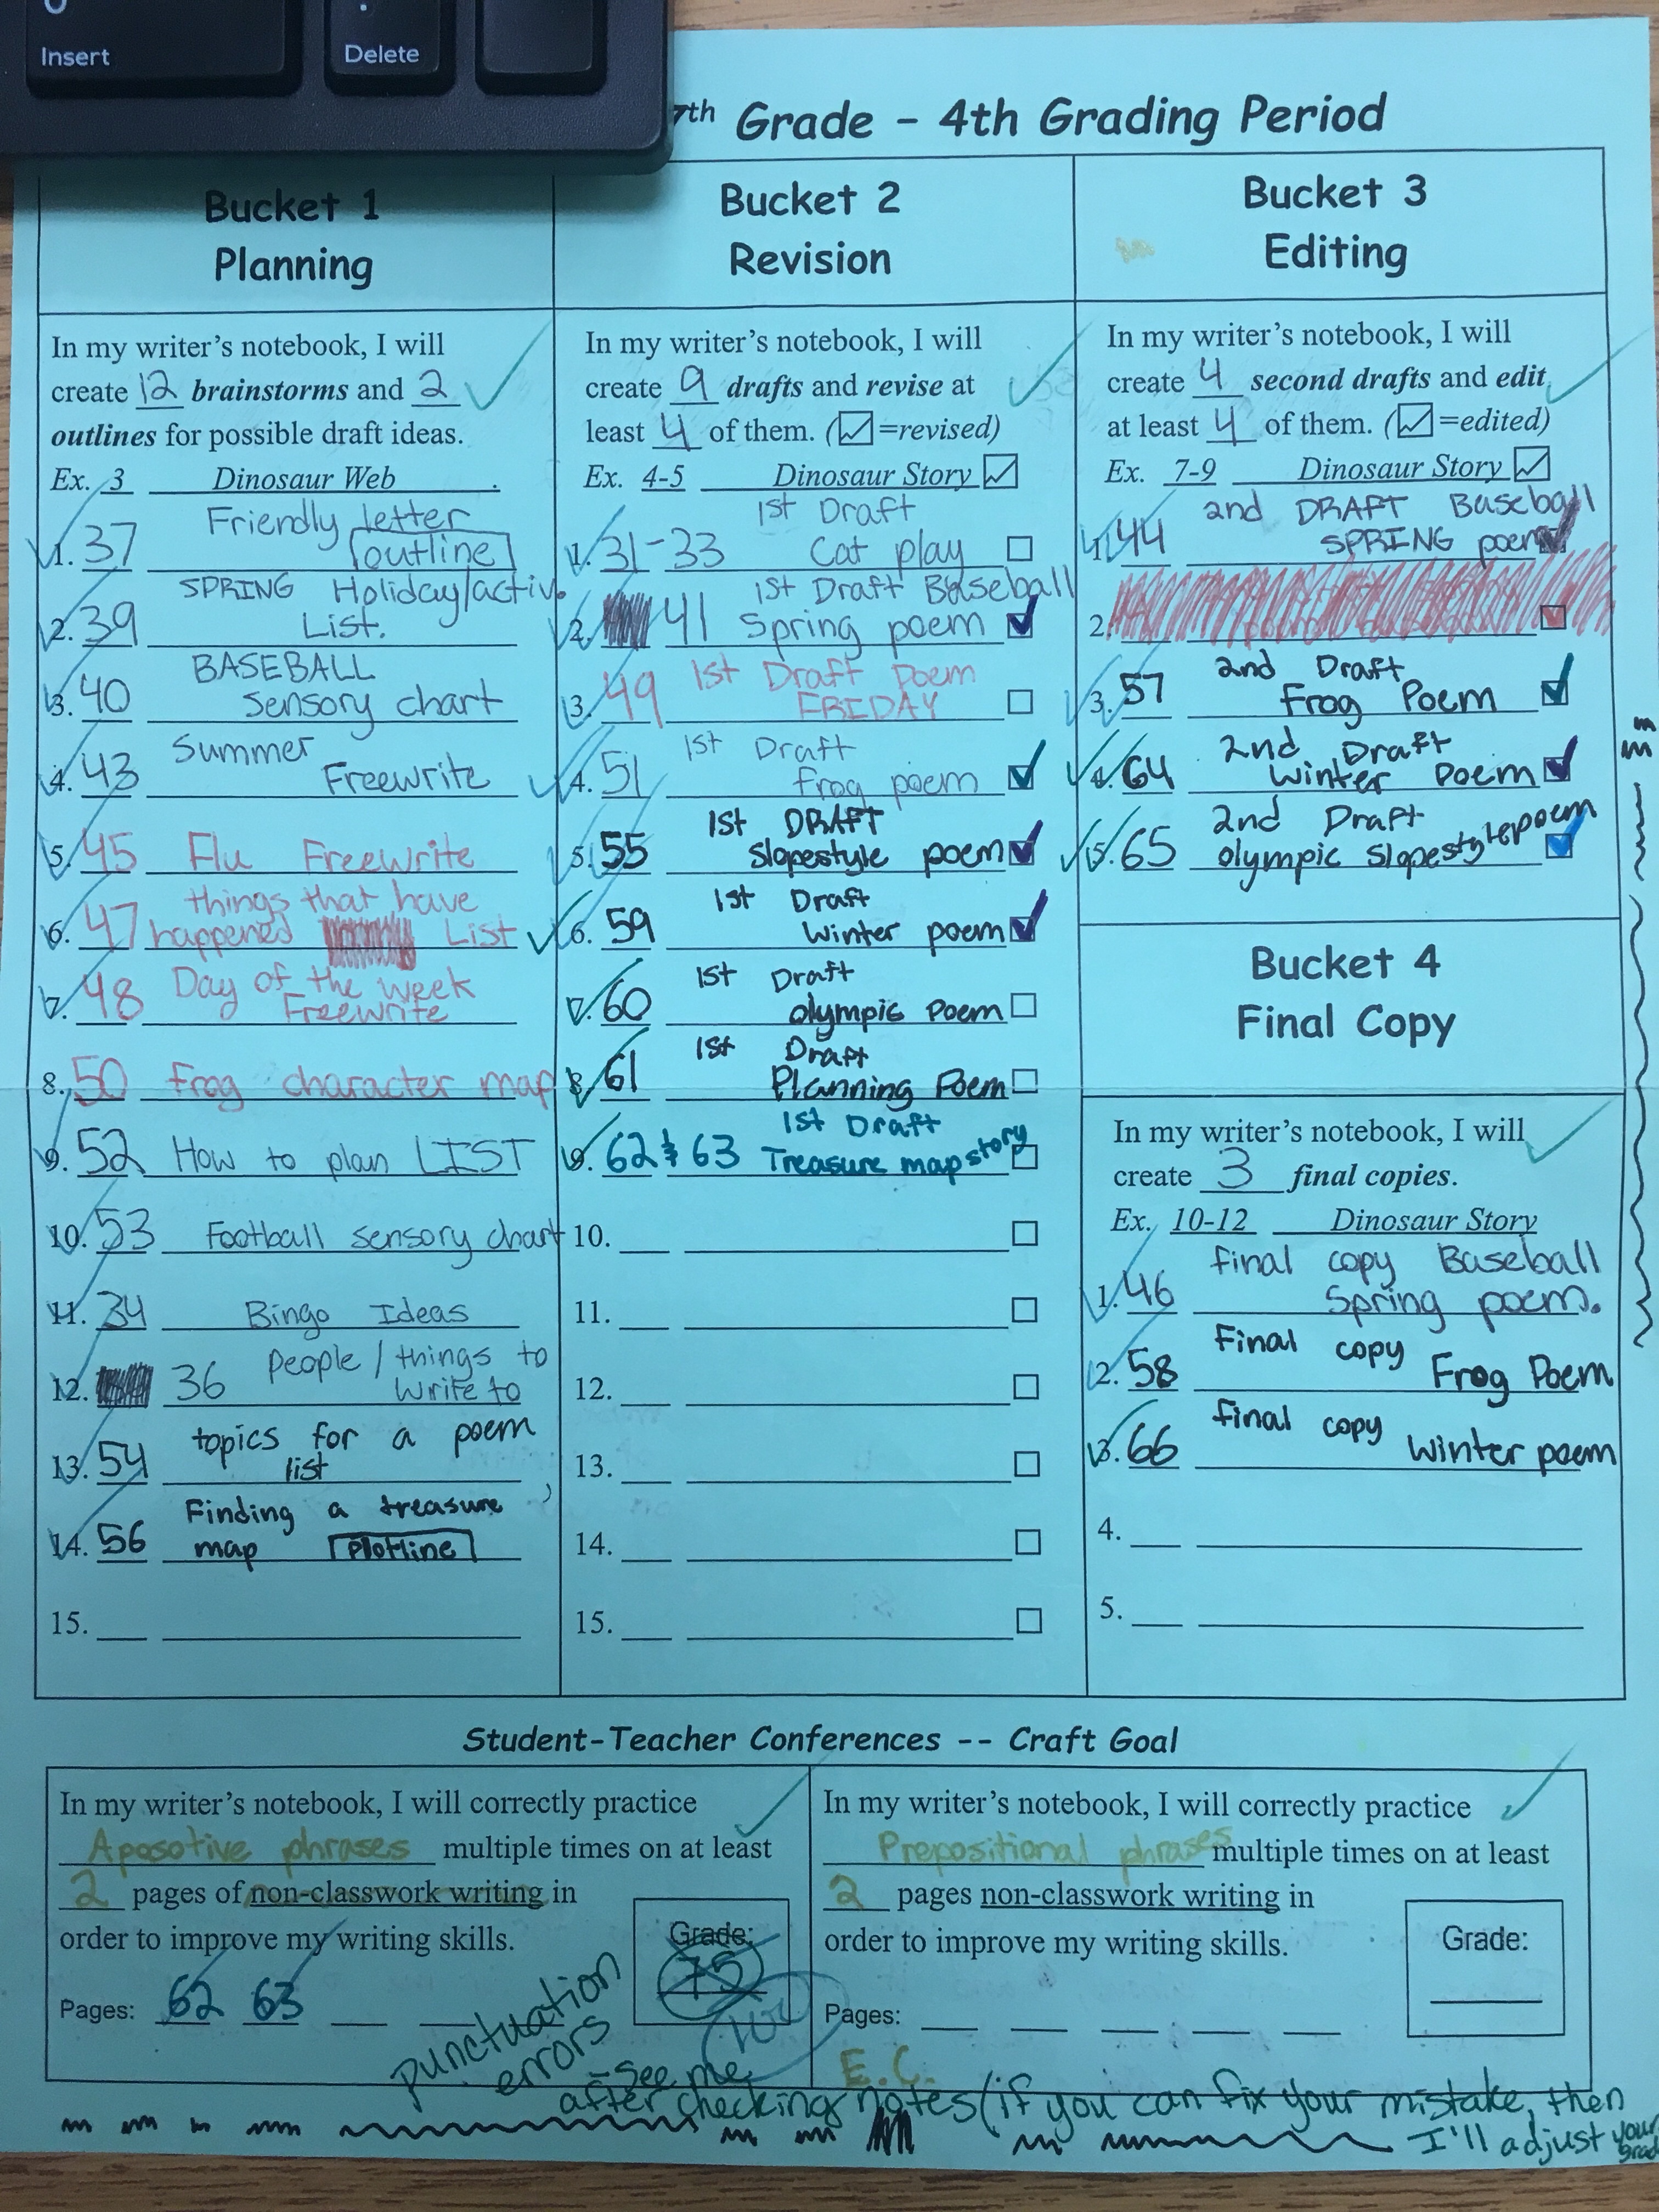 Insert
Delete
7th Grade - 4th Grading Period
Bucket 1
Planning
In my writer's notebook, I will
create 12 brainstorms and 2
outlines for possible draft ideas.
Ex. 3 Dinosaur Web .
Friendly letter
1. 37 outline
SPRING Holiday/activ.
2. 39 List.
BASEBALL
3. 40 sensory chart
Summer
4. 43 Freewrite
5. 45 Flu Freewrite
things that have
6. 47 happened List
7. 48 Day of the week
Freewrite
8. 50 Frog character map
9. 52 How to plan LIST
10. 53 Football sensory chart
11. 34 Bingo Ideas
People / things to
12. 36 write to
topics for a poem
13. 54 list
Finding a treasure
14. 56 map Plotline
15.
Bucket 2
Revision
In my writer's notebook, I will
create 9 drafts and revise at
least 4 of them. (☑=revised)
Ex. 4-5 Dinosaur Story ☑
1st Draft
1. 31-33 Cat play
1st Draft Baseball
2. 41 Spring poem
1st Draft Poem
3. 49 FRIDAY
1st Draft
4. 51 frog poem
1st DRAFT
5. 55 Slopestyle poem
1st Draft
6. 59 Winter poem
1st Draft
7. 60 olympic Poem
1st Draft
8. 61 Planning Poem
1st Draft
9. 62 & 63 Treasure map story
10.
11.
12.
13.
14.
15.
Bucket 3
Editing
In my writer's notebook, I will
create 4 second drafts and edit
at least 4 of them. (☑=edited)
Ex. 7-9 Dinosaur Story ☑
2nd DRAFT Baseball
1. 44 SPRING poem
2.
2nd Draft
3. 57 Frog Poem
2nd Draft
4. 64 Winter Poem
2nd Draft
5. 65 olympic Slopestyle poem
Bucket 4
Final Copy
In my writer's notebook, I will
create 3 final copies.
Ex. 10-12 Dinosaur Story
final copy Baseball
1. 46 Spring poem.
Final copy
2. 58 Frog Poem
final copy
3. 66 Winter poem
4.
5.
Student-Teacher Conferences -- Craft Goal
In my writer's notebook, I will correctly practice
Aposotive phrases multiple times on at least
2 pages of non-classwork writing in
order to improve my writing skills.
Grade:
75
100
Pages: 62 63
punctuation
errors
-see me
after checking notes (if you can fix your mistake, then
I'll adjust your
grade
In my writer's notebook, I will correctly practice
Prepositional phrases multiple times on at least
2 pages non-classwork writing in
order to improve my writing skills.
Grade:
Pages:
E.C.